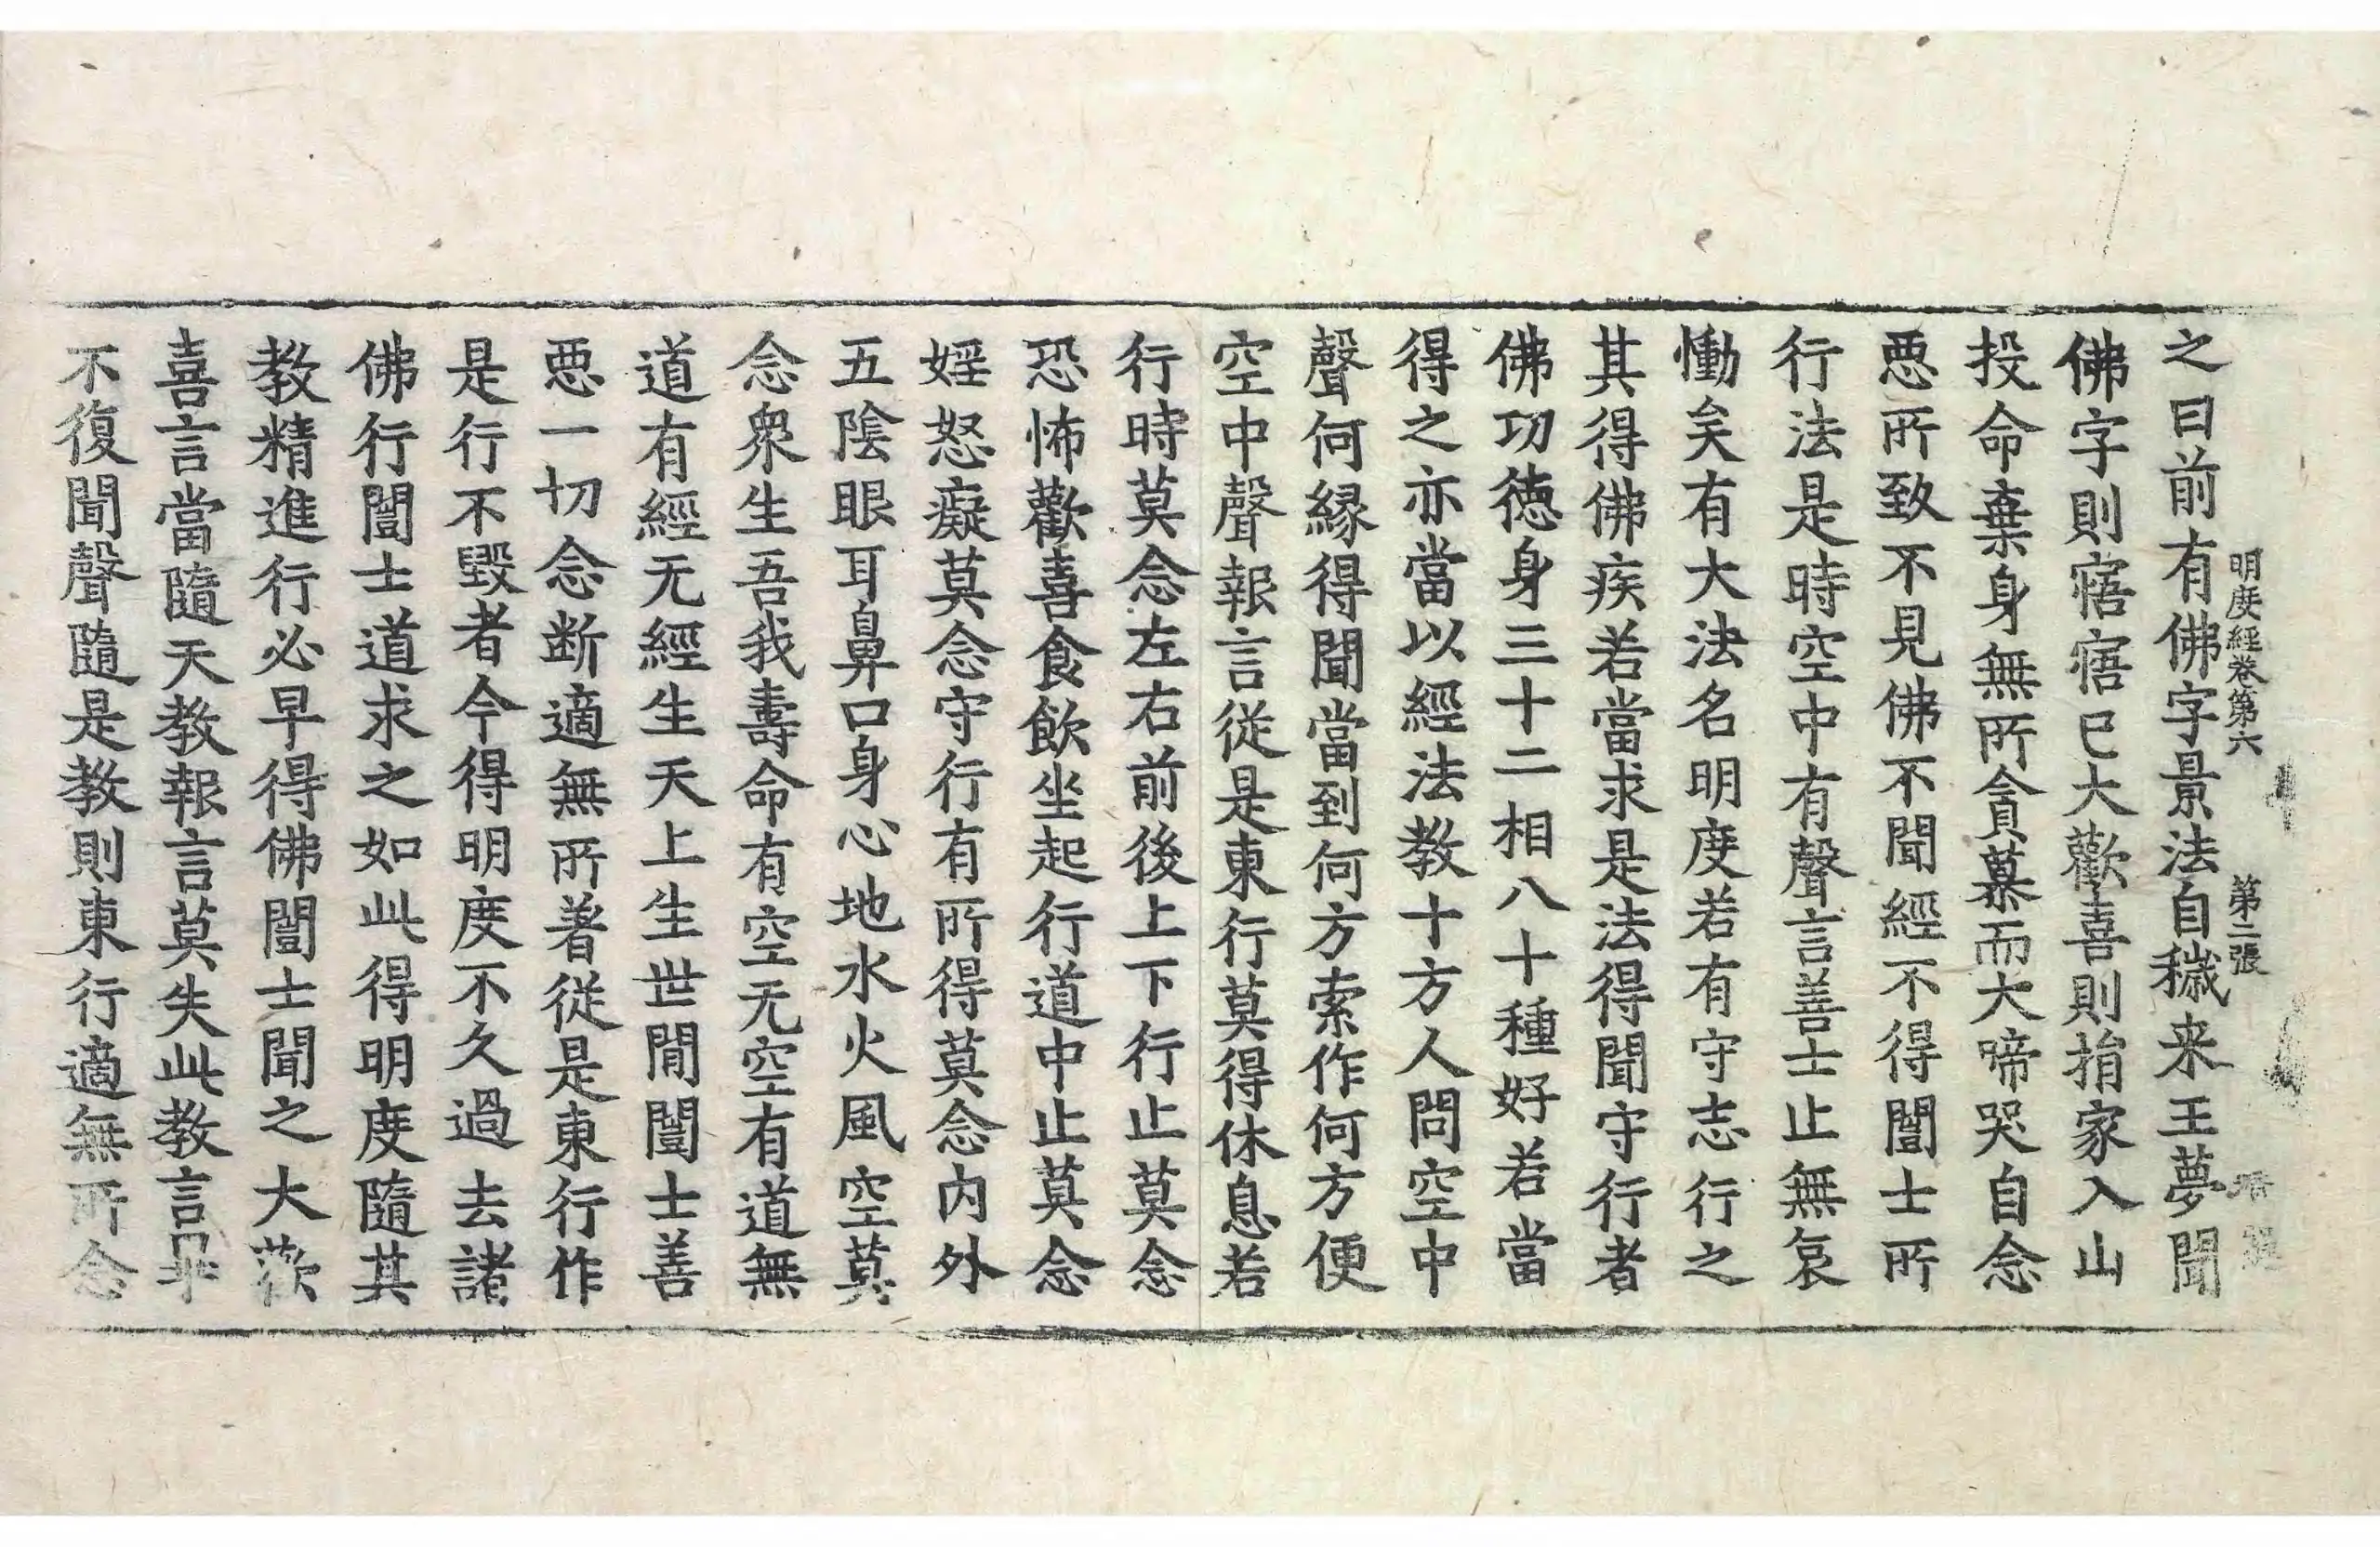 明度經卷第六　第二張
之曰前有佛字景法自穢来王夢聞
佛字則寤寤巳大歡喜則捐家入山
投命棄身無所貪慕而大啼哭自念
惡所致不見佛不聞經不得闓士所
行法是時空中有聲言善士止無哀
慟矣有大法名明度若有守志行之
其得佛疾若當求是法得聞守行者
佛功德身三十二相八十種好若當
得之亦當以經法教十方人問空中
聲何緣得聞當到何方索作何方便
空中聲報言從是東行莫得休息若
行時莫念左右前後上下行止莫念
恐怖歡喜食飲坐起行道中止莫念
婬怒癡莫念守行有所得莫念内外
五陰眼耳鼻口身心地水火風空莫
念衆生吾我壽命有空无空有道無
道有經无經生天上生世閒闓士善
惡一切念断適無所著從是東行作
是行不毀者今得明度不久過去諸
佛行闓士道求之如此得明度隨其
教精進行必早得佛闓士聞之大歡
喜言當隨天教報言莫失此教言畢
不復聞聲隨是教則東行適無所念